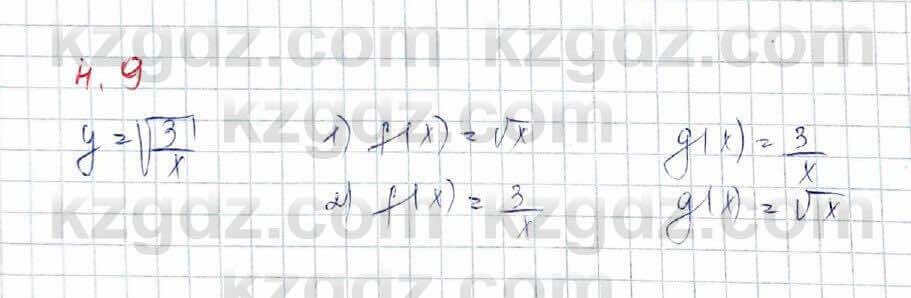 kzgdz.com kzgdz.com
4.9
y = √(3/x) 1) f(x) = √x g(x) = 3/x
kzgdz.com kzgdz.com
2) f(x) = 3/x g(x) = √x
kzgdz.com kzgdz.com
kzgdz.com kzgdz.com